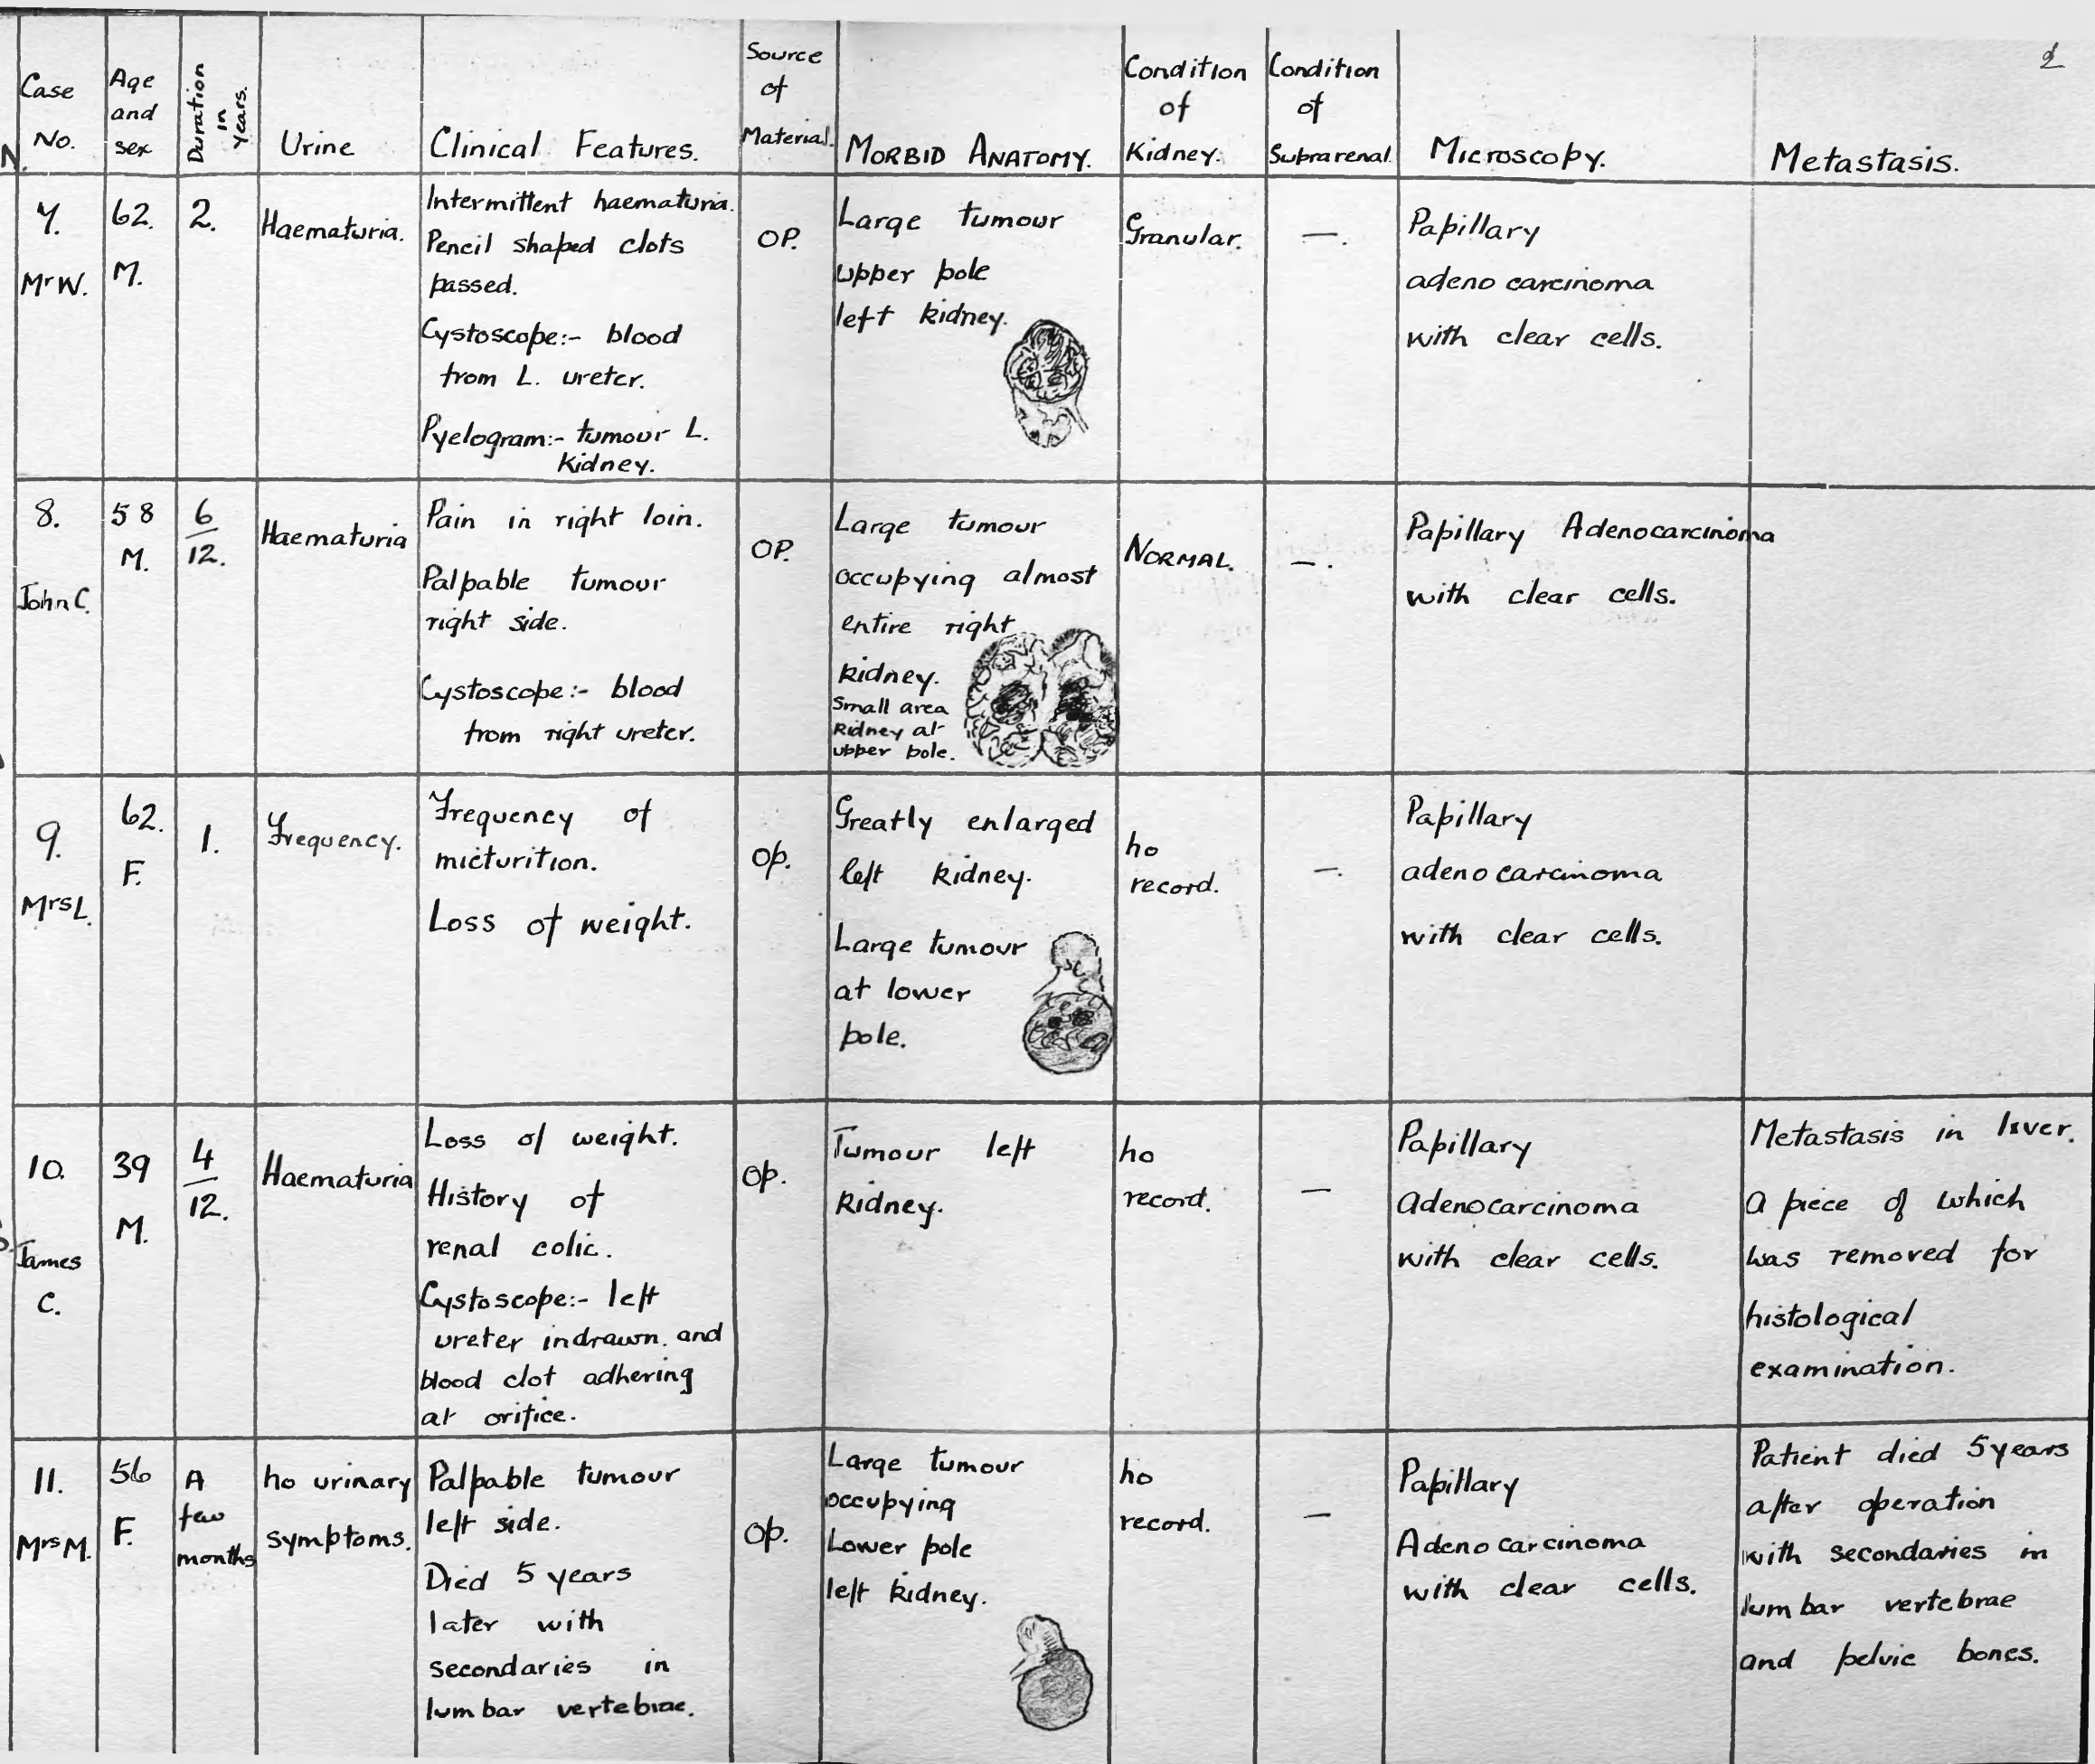 2
N.
Case
No.
Age
and
sex
Duration
in
Years.
Urine
Clinical Features.
Source
of
Material.
MORBID ANATOMY.
Condition
of
Kidney.
Condition
of
Suprarenal
Microscopy.
Metastasis.
7.
Mr W.
62.
M.
2.
Haematuria.
Intermittent haematuria.
Pencil shaped clots
passed.
Cystoscope:- blood
from L. ureter.
Pyelogram:- tumour L.
Kidney.
OP.
Large tumour
upper pole
left kidney.
Granular.
—.
Papillary
adeno carcinoma
with clear cells.
8.
John C.
58
M.
6
12.
Haematuria
Pain in right loin.
Palpable tumour
right side.
Cystoscope:- blood
from right ureter.
OP.
Large tumour
occupying almost
entire right
kidney.
Small area
kidney at
upper pole.
NORMAL.
—.
Papillary Adenocarcinoma
with clear cells.
9.
Mrs L.
62.
F.
1.
Frequency.
Frequency of
micturition.
Loss of weight.
Op.
Greatly enlarged
left kidney.
Large tumour
at lower
pole.
no
record.
—.
Papillary
adeno carcinoma
with clear cells.
10.
James
C.
39
M.
4
12.
Haematuria
Loss of weight.
History of
renal colic.
Cystoscope:- left
ureter indrawn. and
blood clot adhering
at orifice.
Op.
Tumour left
kidney.
no
record.
—
Papillary
Adenocarcinoma
with clear cells.
Metastasis in liver.
a piece of which
was removed for
histological
examination.
11.
Mrs M.
56
F.
A
few
months
no urinary
symptoms.
Palpable tumour
left side.
Died 5 years
later with
secondaries in
lumbar vertebrae.
Op.
Large tumour
occupying
Lower pole
left kidney.
no
record.
—
Papillary
Adeno carcinoma
with clear cells.
Patient died 5 years
after operation
with secondaries in
lumbar vertebrae
and pelvic bones.